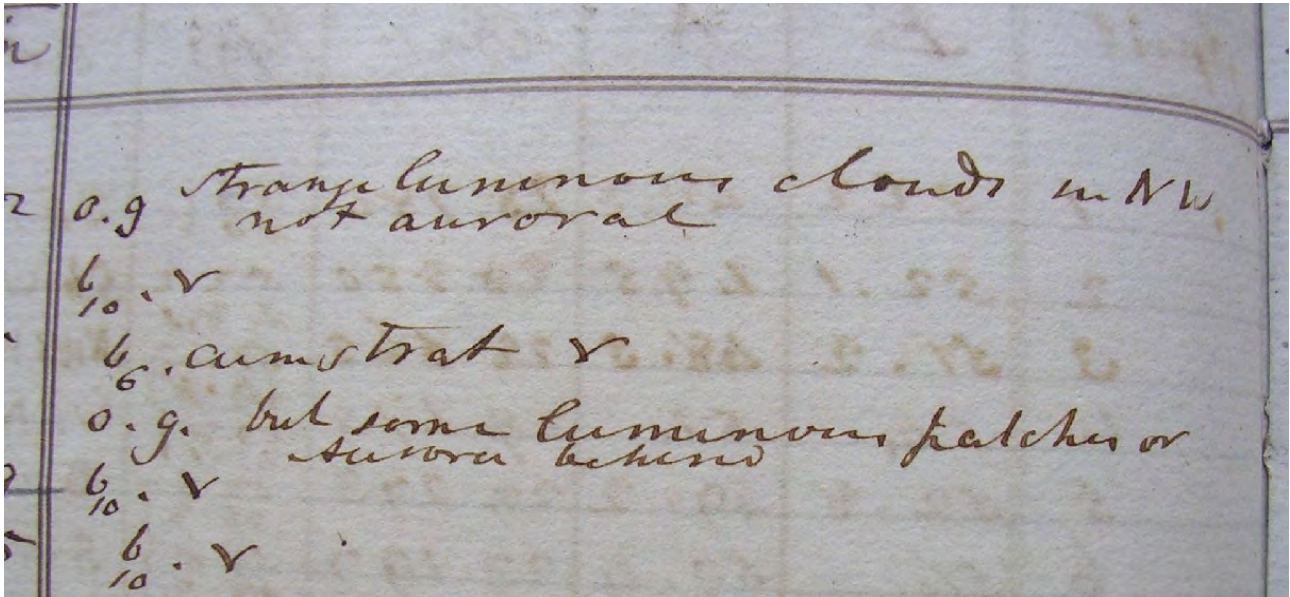 o.g strange luminous clouds in NW
not auroral
b/10. v
b/6. cumstrat v
o.g. but some luminous patches or
Aurora behind
b/10. v
b/10. v